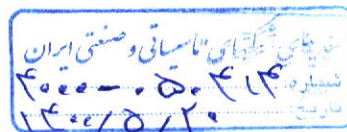 سندیکای شرکتهای تاسیساتی و صنعتی ایران
شماره: ۴۰۰۰-۰۵۰۴۱۴
تاریخ: ۱۴۰۰/۵/۲۰